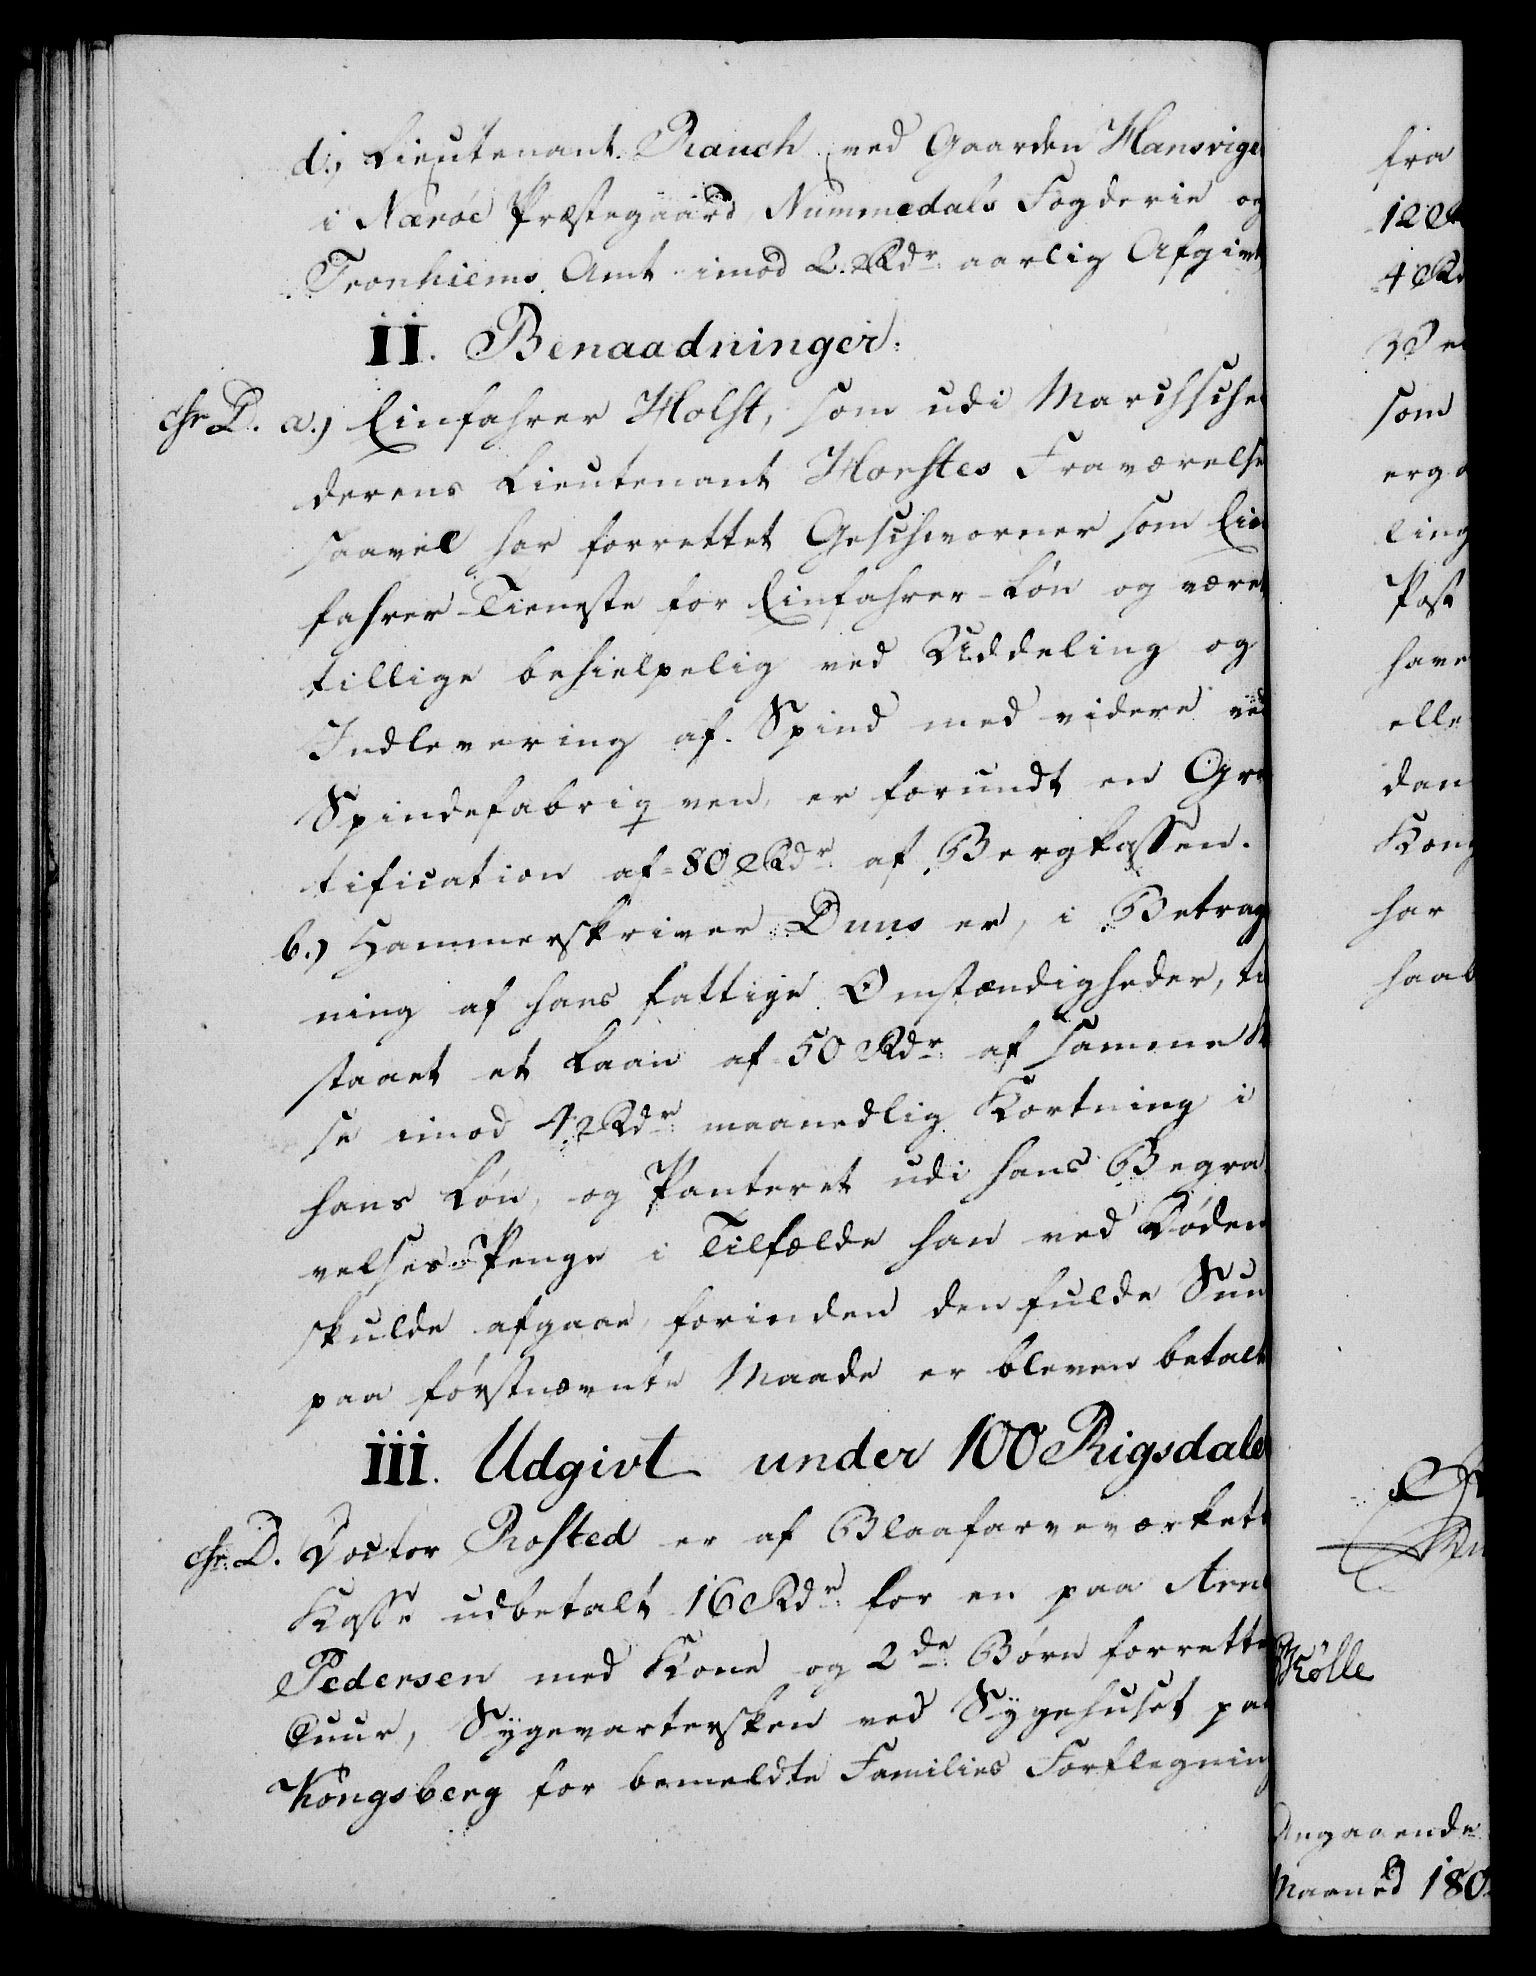 d., Lieutenant Rauch ved Gaarden Hansvigen
i Nærøe Præstegaard, Nummedals Fogderie og
Tronhiems Amt imod 2 Rdr aarlig Afgivt
II. Benaadninger.
Chr. D. a.) Einfahrer Holst, som udi Marchschei
derens Lieutenant Horstes Fraværelse
saavel har forrettet Geschworner som Ein
fahrer-Tieneste for Einfahrer-Løn og været
tillige behielpelig ved Uddeling og
Indlevering af Spind med videre ved
Spindefabriqven, er forundt en Gra
tification af 80 Rdr af Bergkassen.
b.) Hammerskriver Duns er, i Betragt
ning af hans fattige Omstændigheder, til
staaet et Laan af 50 Rdr af samme
se imod 4 Rdr maanedlig Kortning i
hans Løn, og Panteret udi hans Begra
velses-Penge i Tilfælde han ved Døden
skulde afgaae, forinden den fulde Sum
paa førstnævnte Maade er bleven betalt
III. Udgivt under 100 Rigsdaler
Chr. D. Doctor Rosted er af Blaafarveværkets
Kasse udbetalt 16 Rdr for en paa Arne
Pedersen med Kone og 2de Børn forrettet
Cuur, Sygevartersken ved Sygehuset paa
Kongsberg for bemeldte Families Forflegning
fra
12 R
4 Rd
Ve
som
erga
ling
Post
have
elle
dan
Kong
har
haab
Kølle
Angaaende
Maaned 180